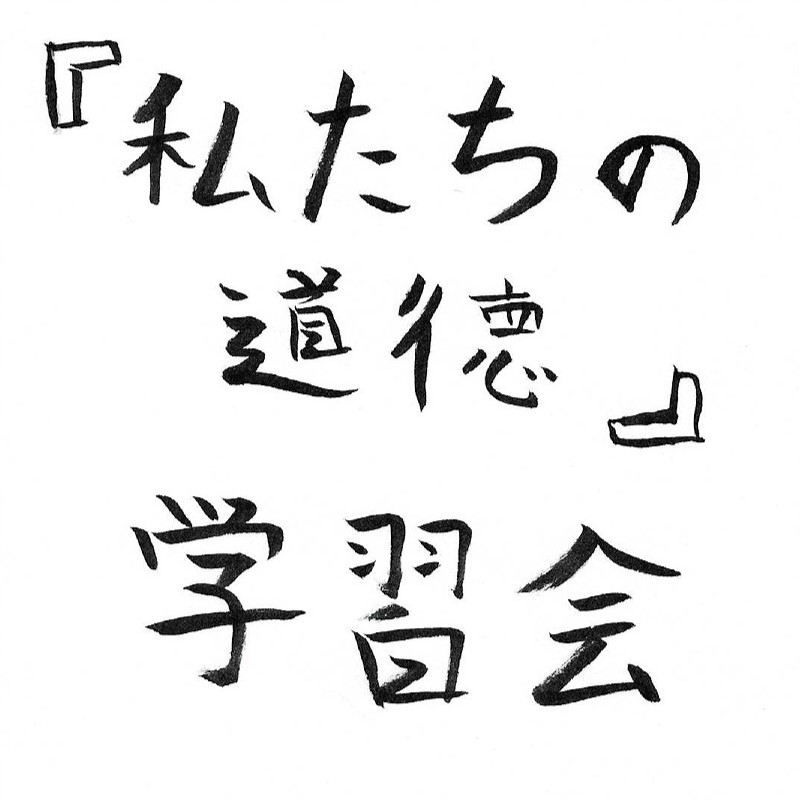 『私たちの
道徳』
学習会